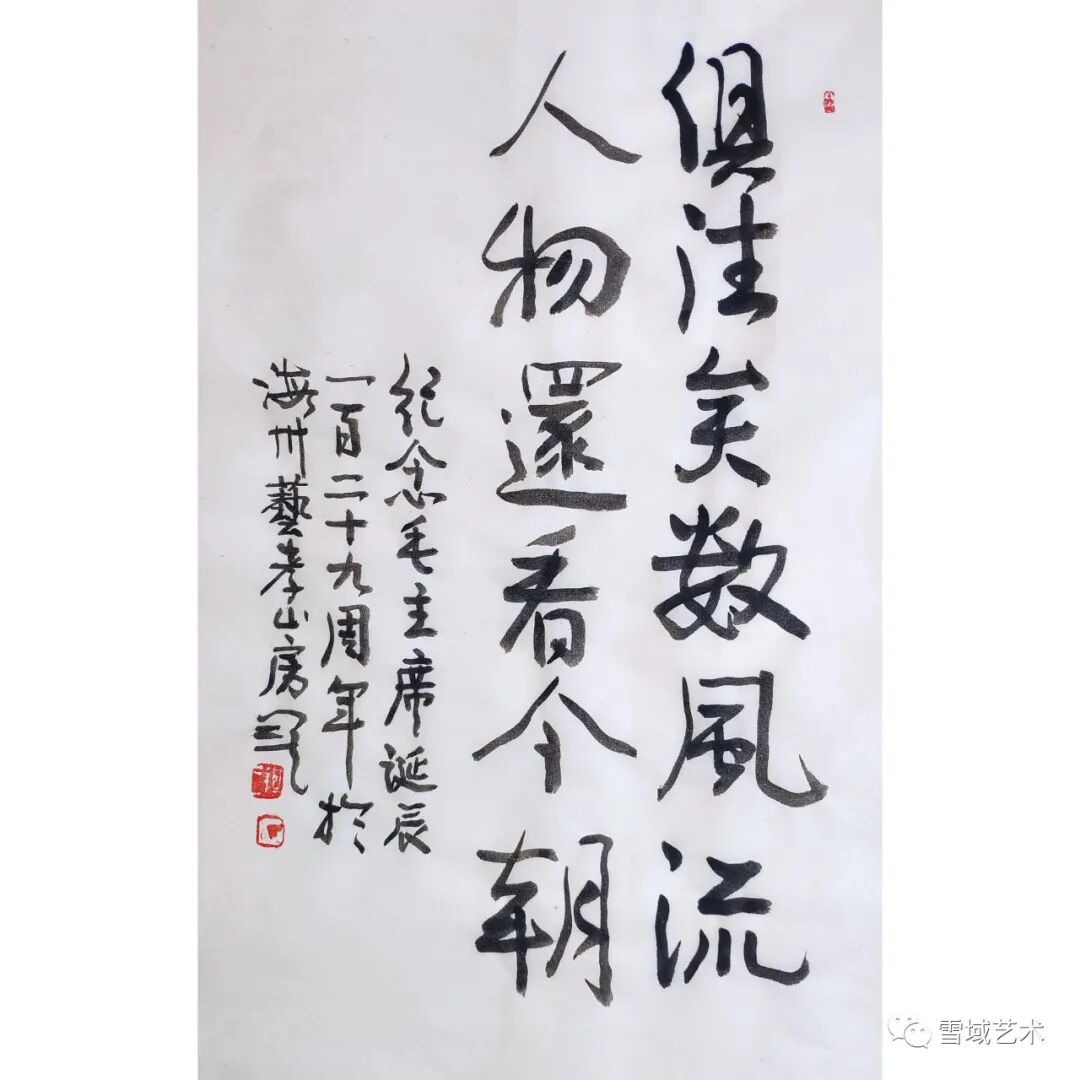 俱往矣数風流
人物還看今朝
纪念毛主席诞辰
一百二十九周年於
海州藝孝山房
雪域艺术